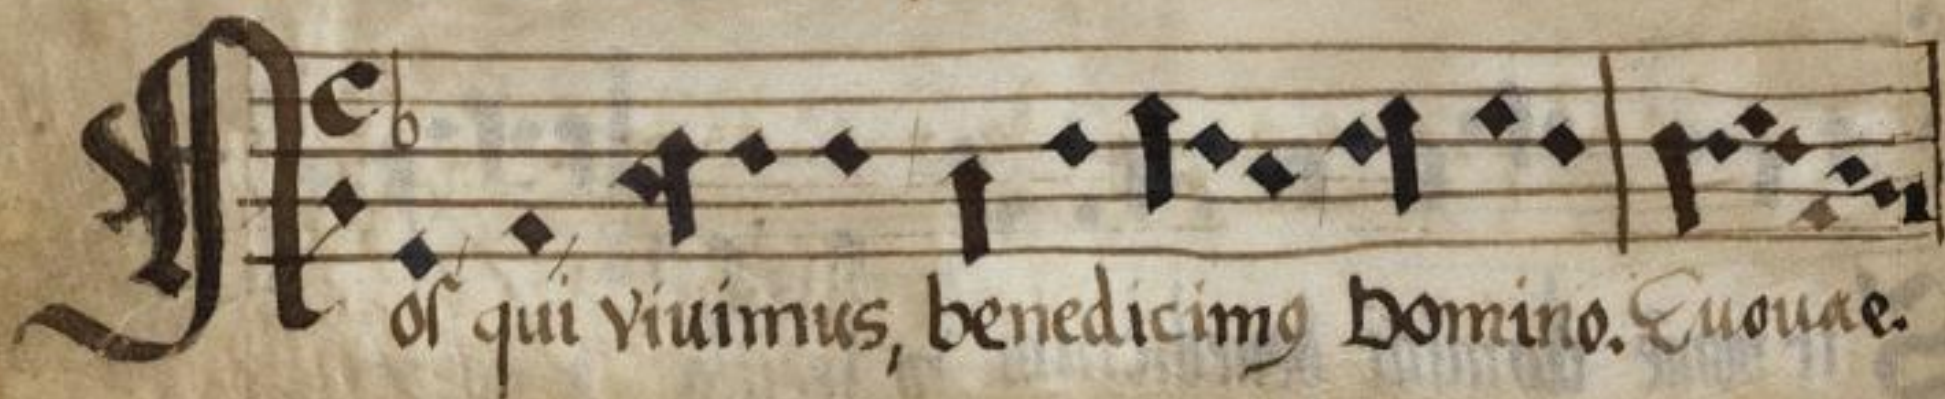 Nos qui viuimus, benedicimꝰ Domino. Euouae.